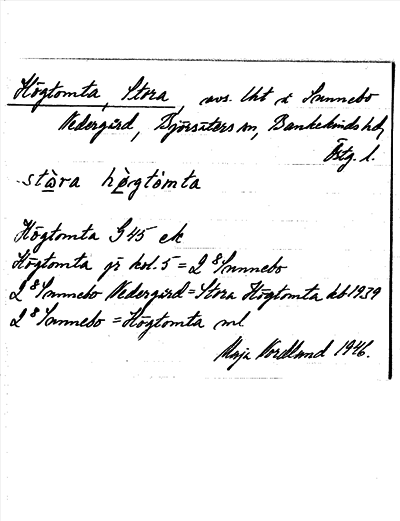 Högtomta, Stora, avs. lht i Sunnebo
Nedergård, Björsäters sn, Bankekinds hd,
Östg. l.
stȧ̀ra hø̀gtómta
Högtomta G 45 ek
Högtomta jr kol. 5 = 2 8 Sunnebo
2 8 Sunnebo Nedergård = Stora Högtomta kb 1939
2 8 Sunnebo = Högtomta ml
Maja Nordlund 1946.